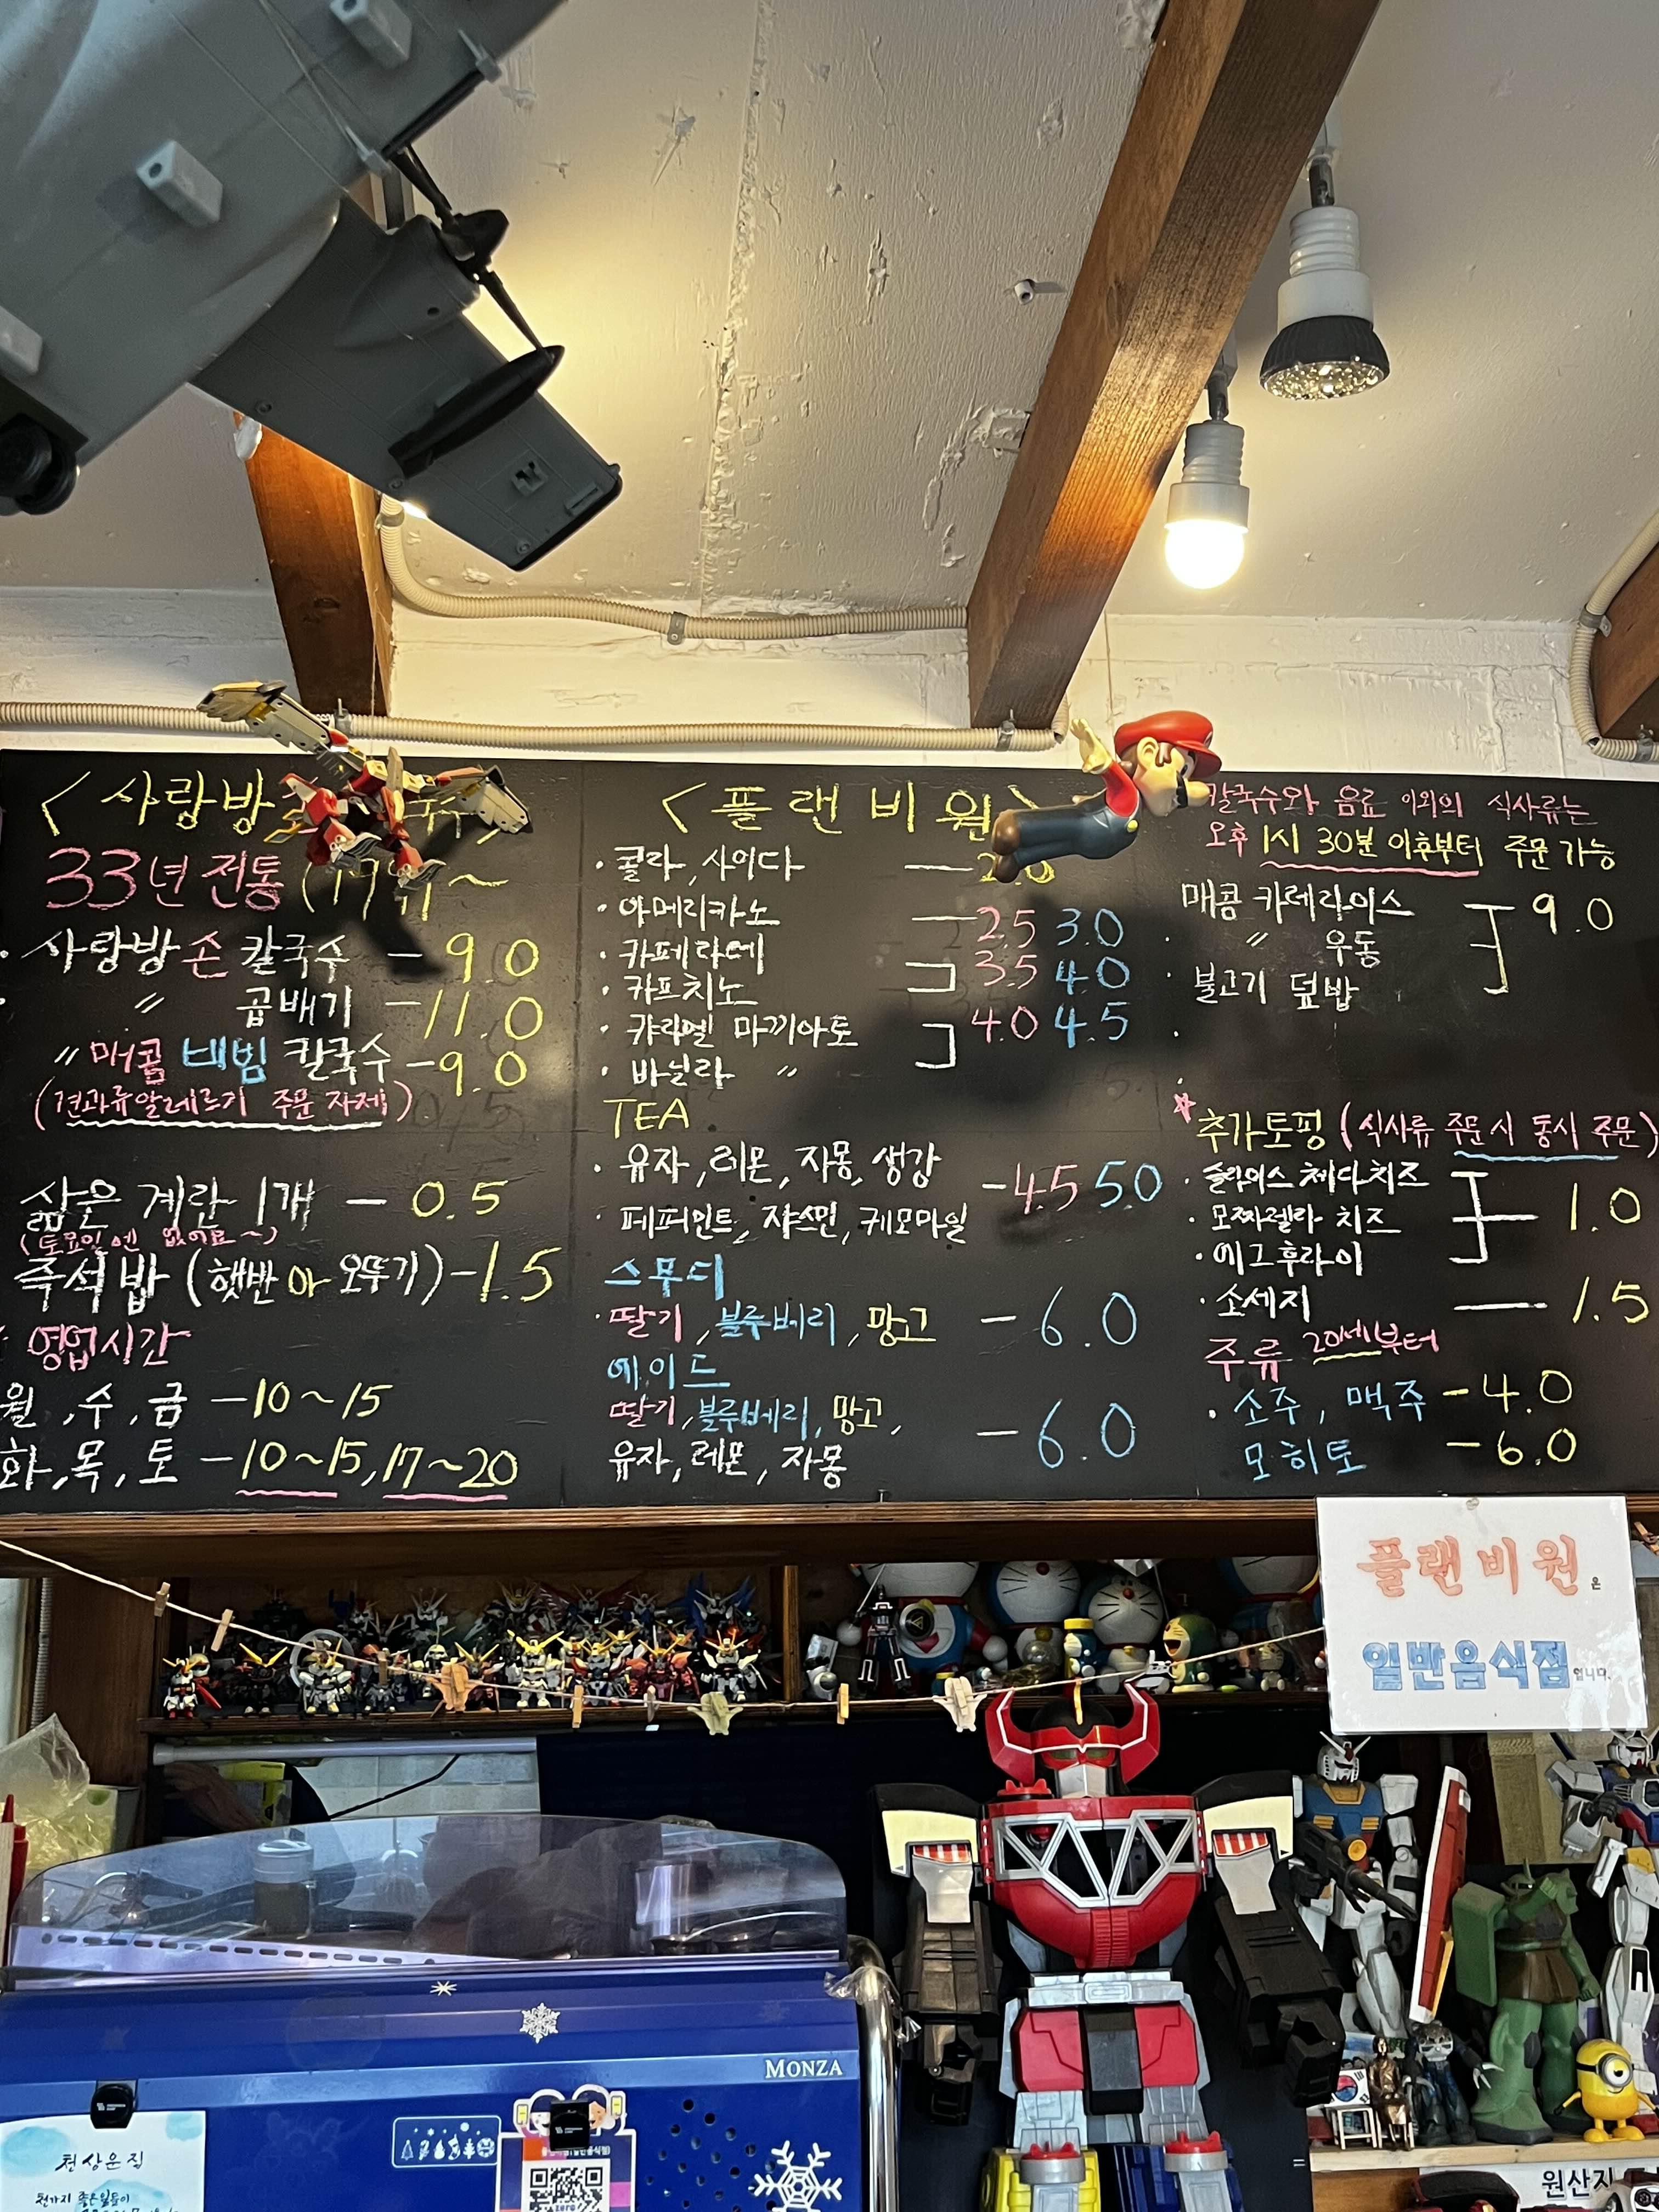 <사랑방
33년 전통 (19
· 사랑방 손 칼국수 - 9.0
· 〃 곱배기 - 11.0
〃 매콤 비빔 칼국수 - 9.0
(견과류알레르기 주문 자제)
삶은 계란 1개 - 0.5
(토요일엔 없어요~)
즉석밥 (햇반 or 오뚜기) - 1.5
영업시간
월, 수, 금 - 10~15
화, 목, 토 - 10~15, 17~20
<플랜비원>
· 콜라, 사이다 — 2.0
· 아메리카노 — 2.5 3.0
· 카페라떼
· 카프치노 3.5 4.0
· 캬라멜 마끼아토
· 바닐라 〃 4.0 4.5
TEA
· 유자, 레몬, 자몽, 생강
· 페퍼민트, 쟈스민, 케모마일 - 4.5 5.0
스무디
· 딸기, 블루베리, 망고 - 6.0
에이드
딸기, 블루베리, 망고,
유자, 레몬, 자몽 - 6.0
칼국수와 음료 이외의 식사류는
오후 1시 30분 이후부터 주문 가능
매콤 카레라이스
· 〃 우동 9.0
· 불고기 덮밥
추가토핑 (식사류 주문시 동시 주문)
· 슬라이스 체다치즈
· 모짜렐라 치즈 1.0
· 에그후라이
· 소세지 — 1.5
주류 20세부터
· 소주, 맥주 - 4.0
모히토 - 6.0
플랜비원은
일반음식점입니다.
MONZA
천상은집
원산지